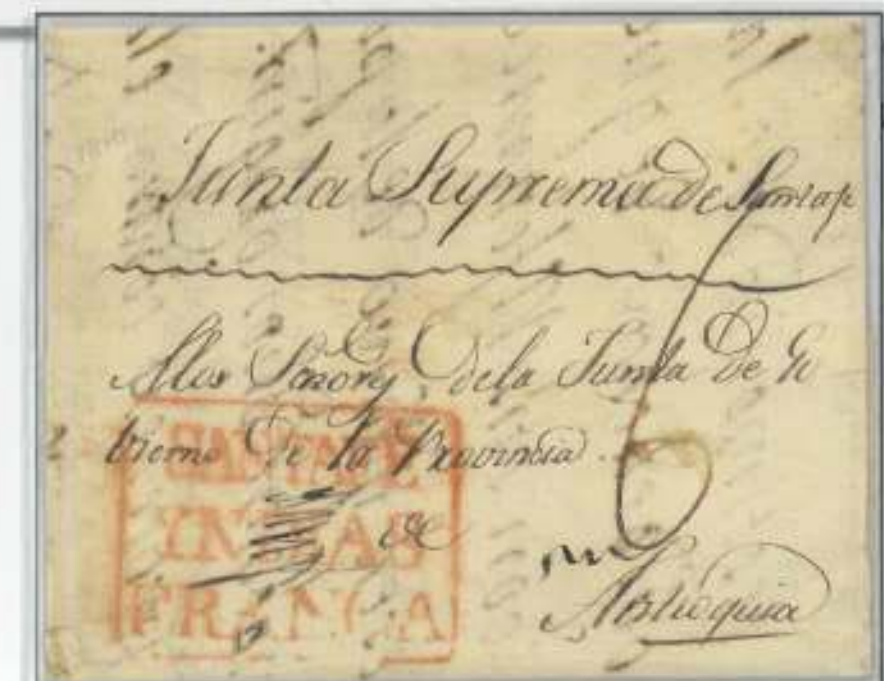 Junta Suprema de Santafe
A los Señores de la Junta de Go
bierno de la Provincia
de
Antioquia
SANTAFE
YNDIAS
FRANCA